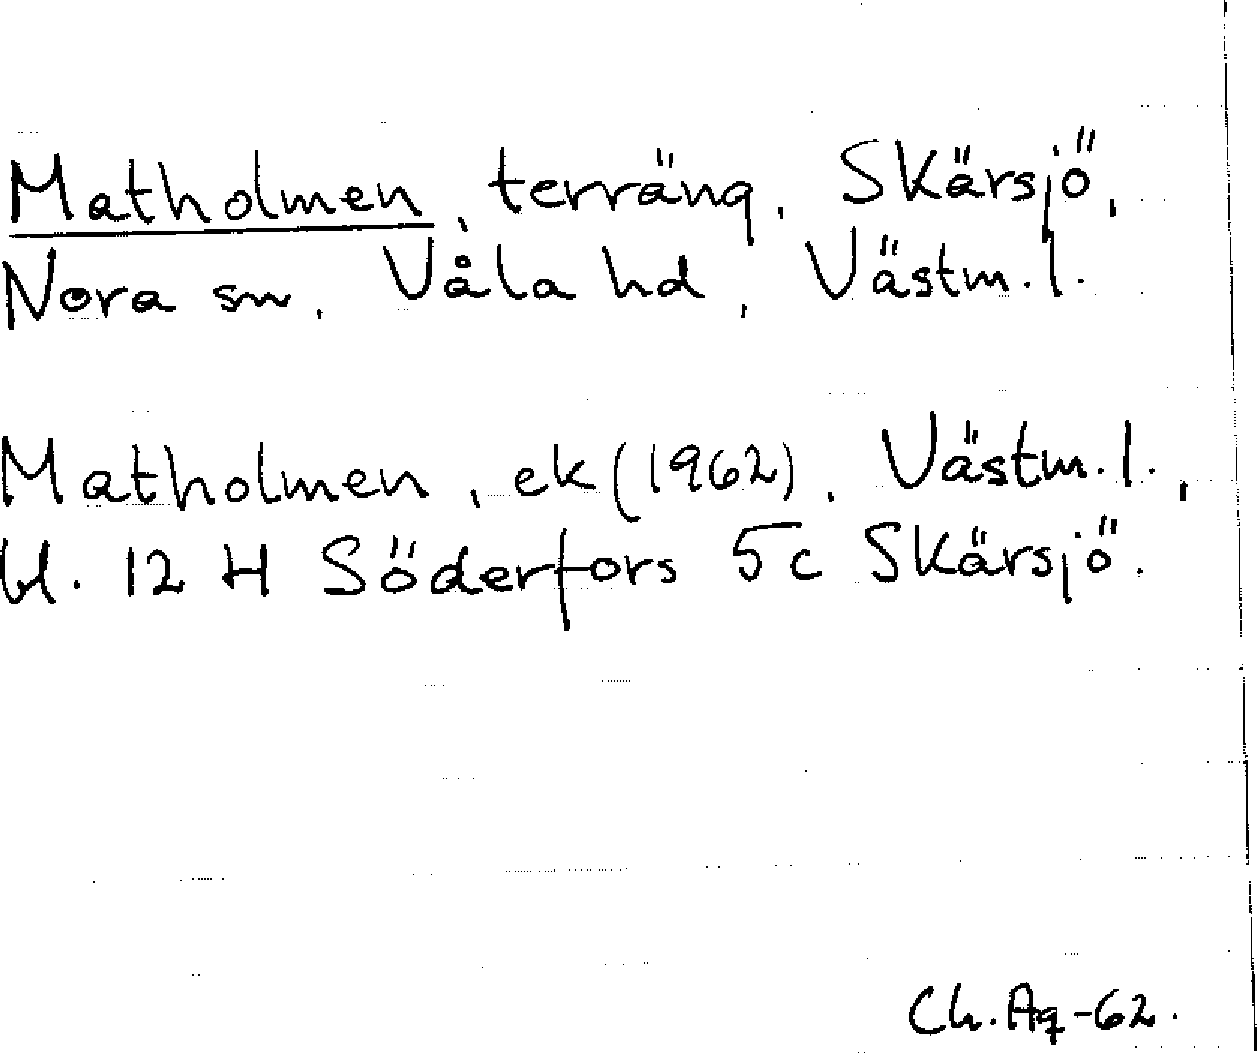 Matholmen, terräng, Skärsjö,
Nora sn, Våla hd, Västm.l.
Matholmen, ek (1962), Västm.l.,
bl. 12 H Söderfors 5c Skärsjö.
Ch. Ag -62.